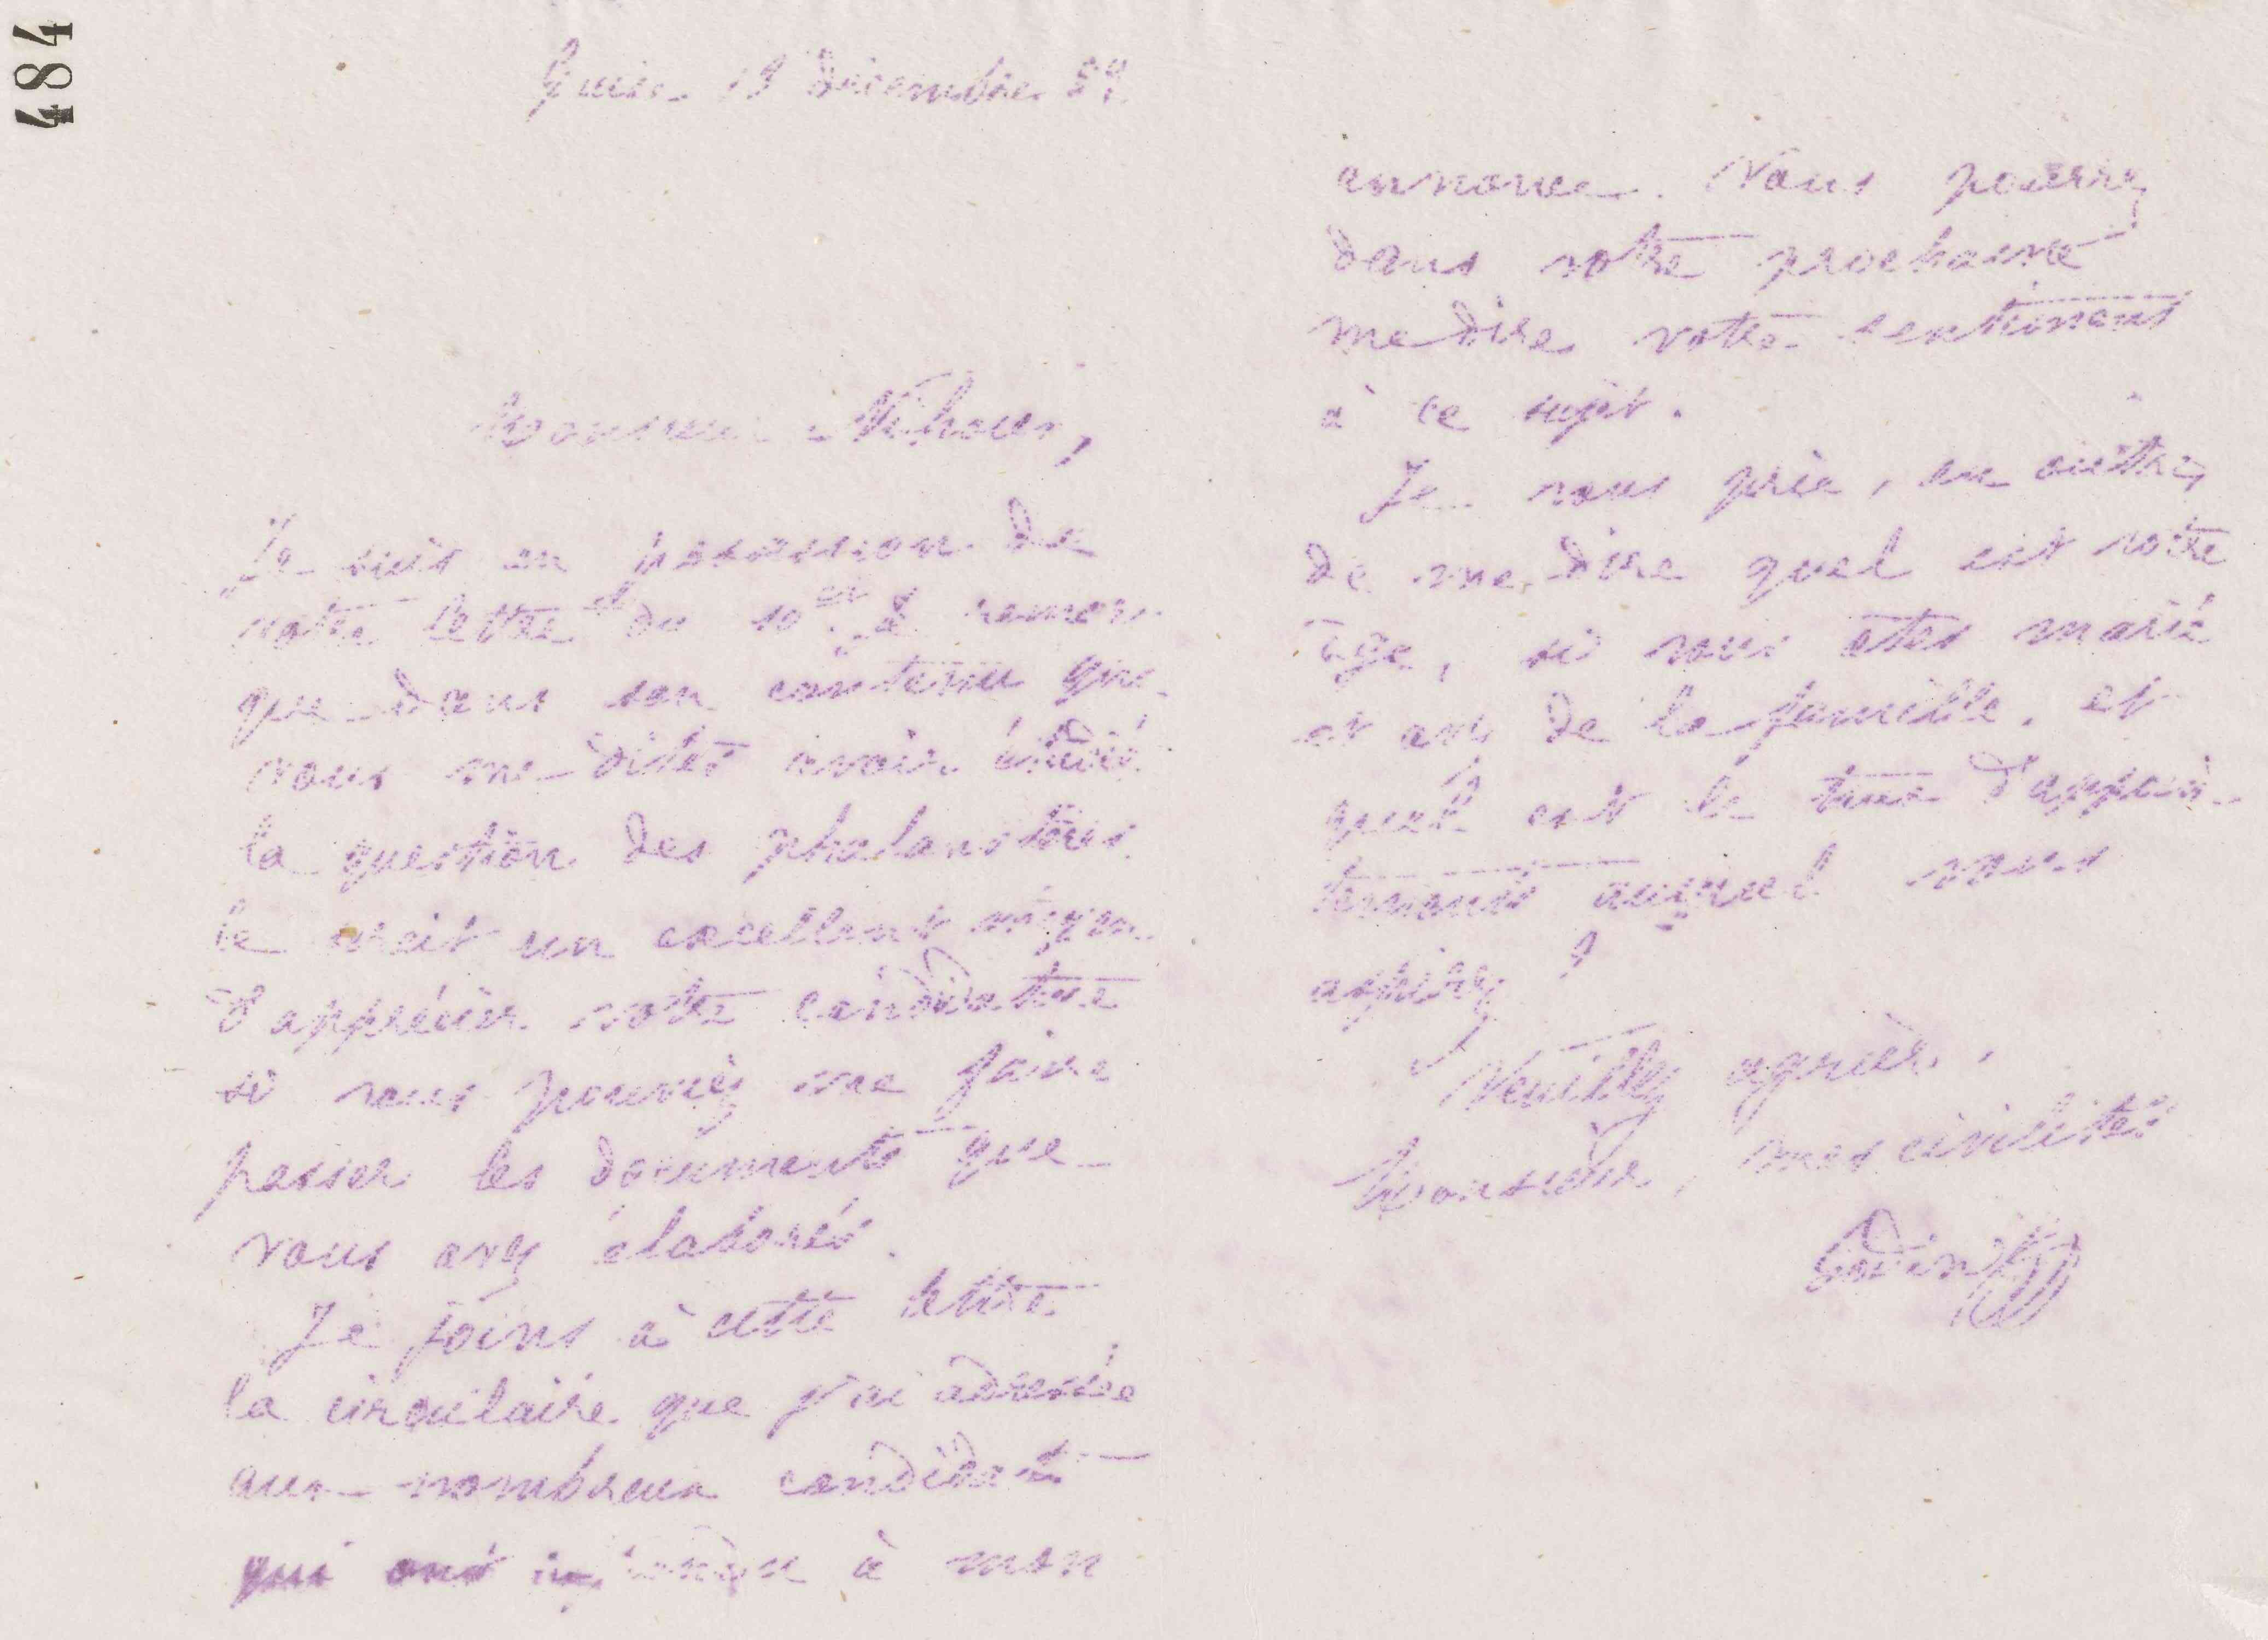 484
Guise 19 Décembre 87
Monsieur Nihoui,
Je suis en possession de
votre lettre du 10 ct. Je remar
que dans son contenu que
vous me dites avoir étudié
la question des phalanstères
ce serait un excellent moyen
d'apprécier votre candidature
si vous pouviez me faire
passer les documents que
vous avez élaborés.
Je joins à cette lettre
la circulaire que j'ai adressée
aux nombreux candidats
qui ont répondu à mon
annonce. Vous pourrez
dans votre prochaine
me dire votre sentiment
à ce sujet.
Je vous prie, en outre,
de me dire quel est votre
âge, si vous êtes marié
et avez de la famille, et
quel est le taux d'appoin-
tements auquel vous
aspirez ?
Veuillez agréer,
Monsieur, mes civilités
Godin